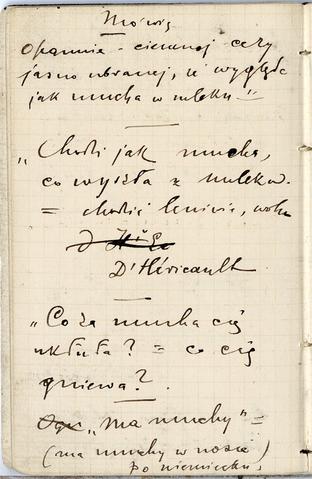 Mówią
o pannie - ciemnej cery
jasno ubranej, że wygląda
jak mucha w mleku."
"Chodzi jak mucha,
co wyszła z mleka.
= chodzić leniwie, wolno
D'Héricault
"Co za mucha cię
ukłuła? = co cię
gniewa?.
"ma muchy" =
(ma muchy w nosie)
po niemiecku,